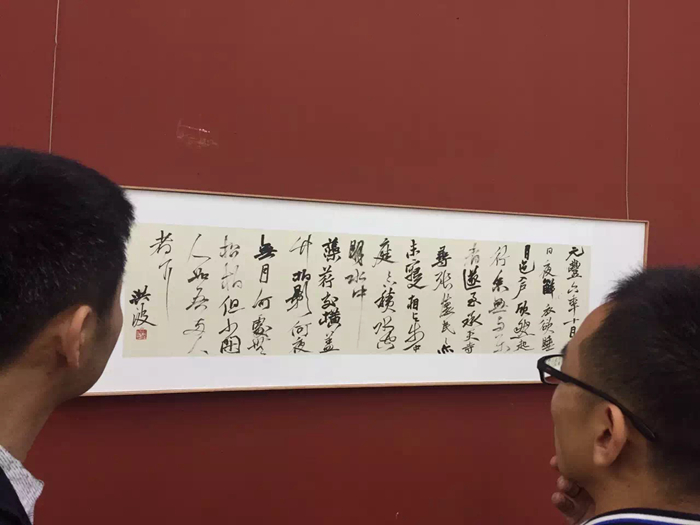 元豐六年十月
日夜解衣欲睡
月色入户欣然起
行念無與樂
者遂至承天寺
尋張懷民亦
未寢相與步中
庭下積水空
明水中
藻荇交橫蓋
竹柏影何夜
無月何處無
松柏但少閑
人如吾兩人
者耳
洪波